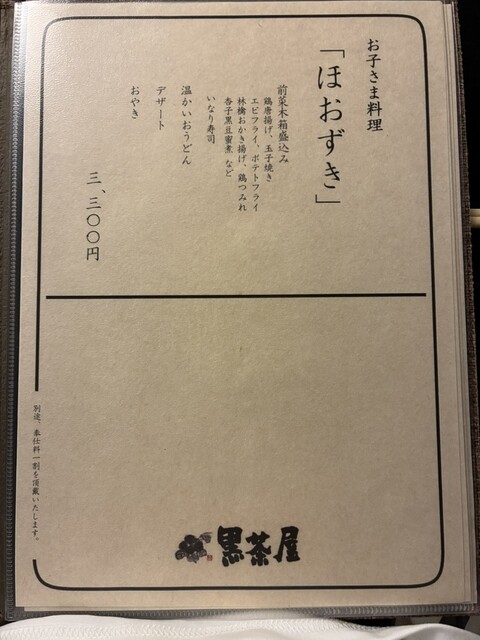 お子さま料理
「ほおずき」
前菜木箱盛込み
鶏唐揚げ、玉子焼き
エビフライ、ポテトフライ
林檎おかき揚げ、鶏つみれ
杏子黒豆蜜煮 など
いなり寿司
温かいおうどん
デザート
おやき
三、三〇〇円
別途、奉仕料一割を頂戴いたします。
黒茶屋